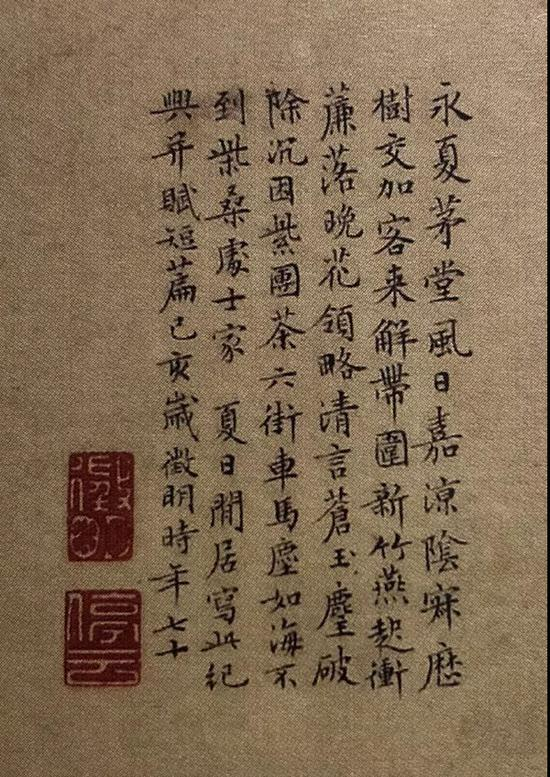 永夏茅堂風日嘉凉陰寂歷
樹交加客来解帶圍新竹燕起衝
簾落晚花領略清言蒼玉麈破
除沉困紫團茶六街車馬塵如海不
到柴桑處士家 夏日閒居寫此紀
興并賦短篇己亥歲徵明時年七十
徵明
停雲